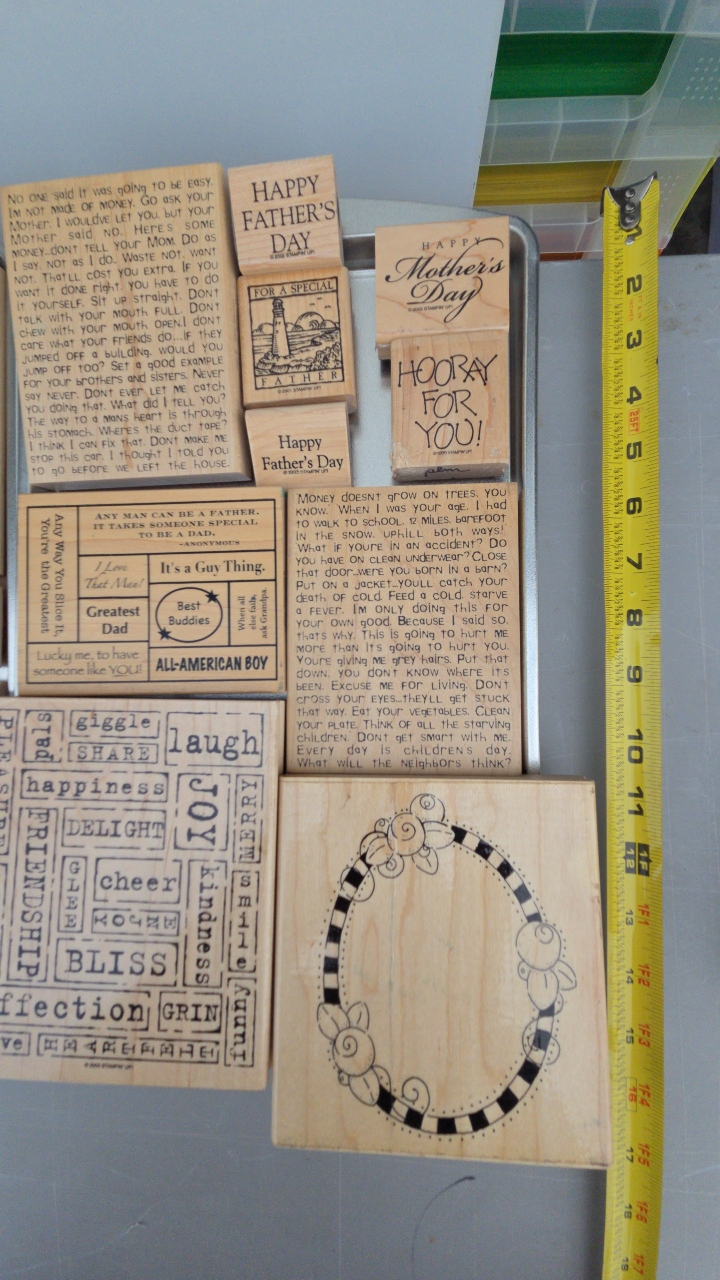 NO ONE SAID IT WAS GOING TO BE EASY.
I'M NOT MADE OF MONEY. GO ASK YOUR
MOTHER. I WOULDVE LET YOU, BUT YOUR
MOTHER SAID NO. HERE'S SOME
MONEY...DON'T TELL YOUR MOM. DO AS
I SAY, NOT AS I DO. WASTE NOT, WANT
NOT. THAT'LL COST YOU EXTRA. IF YOU
WANT IT DONE RIGHT, YOU HAVE TO DO
IT YOURSELF. SIT UP STRAIGHT. DON'T
TALK WITH YOUR MOUTH FULL. DON'T
CHEW WITH YOUR MOUTH OPEN. I DON'T
CARE WHAT YOUR FRIENDS DO...IF THEY
JUMPED OFF A BUILDING, WOULD YOU
JUMP OFF TOO? SET A GOOD EXAMPLE
FOR YOUR BROTHERS AND SISTERS. NEVER
SAY NEVER. DON'T EVER LET ME CATCH
YOU DOING THAT. WHAT DID I TELL YOU?
THE WAY TO A MANS HEART IS THROUGH
HIS STOMACH. WHERE'S THE DUCT TAPE?
I THINK I CAN FIX THAT. DON'T MAKE ME
STOP THIS CAR. I THOUGHT I TOLD YOU
TO GO BEFORE WE LEFT THE HOUSE.
HAPPY
FATHER'S
DAY
FOR A SPECIAL
FATHER
Happy
Father's Day
HAPPY
Mother's
Day
HOORAY
FOR
YOU!
palm
Any Way You Slice It,
You're the Greatest
ANY MAN CAN BE A FATHER.
IT TAKES SOMEONE SPECIAL
TO BE A DAD.
-ANONYMOUS
I Love
That Man!
It's a Guy Thing.
Greatest
Dad
Best
Buddies
When all
else fails,
ask Grandpa.
Lucky me, to have
someone like YOU!
ALL-AMERICAN BOY
MONEY DOESN'T GROW ON TREES, YOU
KNOW. WHEN I WAS YOUR AGE, I HAD
TO WALK TO SCHOOL, 12 MILES, BAREFOOT
IN THE SNOW, UPHILL BOTH WAYS!
WHAT IF YOU'RE IN AN ACCIDENT? DO
YOU HAVE ON CLEAN UNDERWEAR? CLOSE
THAT DOOR...WERE YOU BORN IN A BARN?
PUT ON A JACKET...YOU'LL CATCH YOUR
DEATH OF COLD. FEED A COLD, STARVE
A FEVER. I'M ONLY DOING THIS FOR
YOUR OWN GOOD. BECAUSE I SAID SO,
THAT'S WHY. THIS IS GOING TO HURT ME
MORE THAN IT'S GOING TO HURT YOU.
YOU'RE GIVING ME GREY HAIRS. PUT THAT
DOWN, YOU DON'T KNOW WHERE IT'S
BEEN. EXCUSE ME FOR LIVING. DON'T
CROSS YOUR EYES...THEY'LL GET STUCK
THAT WAY. EAT YOUR VEGETABLES. CLEAN
YOUR PLATE. THINK OF ALL THE STARVING
CHILDREN. DON'T GET SMART WITH ME.
EVERY DAY IS CHILDREN'S DAY.
WHAT WILL THE NEIGHBORS THINK?
glad
giggle
SHARE
laugh
happiness
JOY
MERRY
FRIENDSHIP
DELIGHT
GLEE
cheer
ENJOY
kindness
smile
BLISS
ffection
GRIN
funny
ve
HEARTFELT
1
2
3
4
25FT
5
6
7
8
9
10
11
12
1F
13
1F1
14
1F2
15
1F3
16
1F4
17
1F5
18
1F6
19
1F7